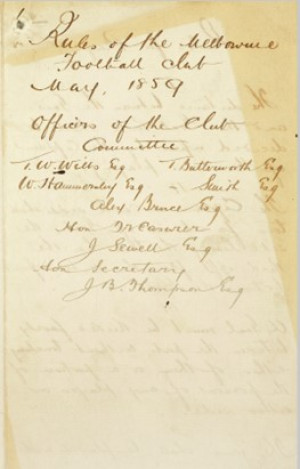 Rules of the Melbourne
Football Club
May, 1859
Officers of the Club
Committee
T. W. Wills Esq T. Butterworth Esq
W. Hammersley Esq - Smith Esq
Alex Bruce Esq
Hon Treasurer
J Sewell Esq
Hon Secretary
J. B. Thompson Esq